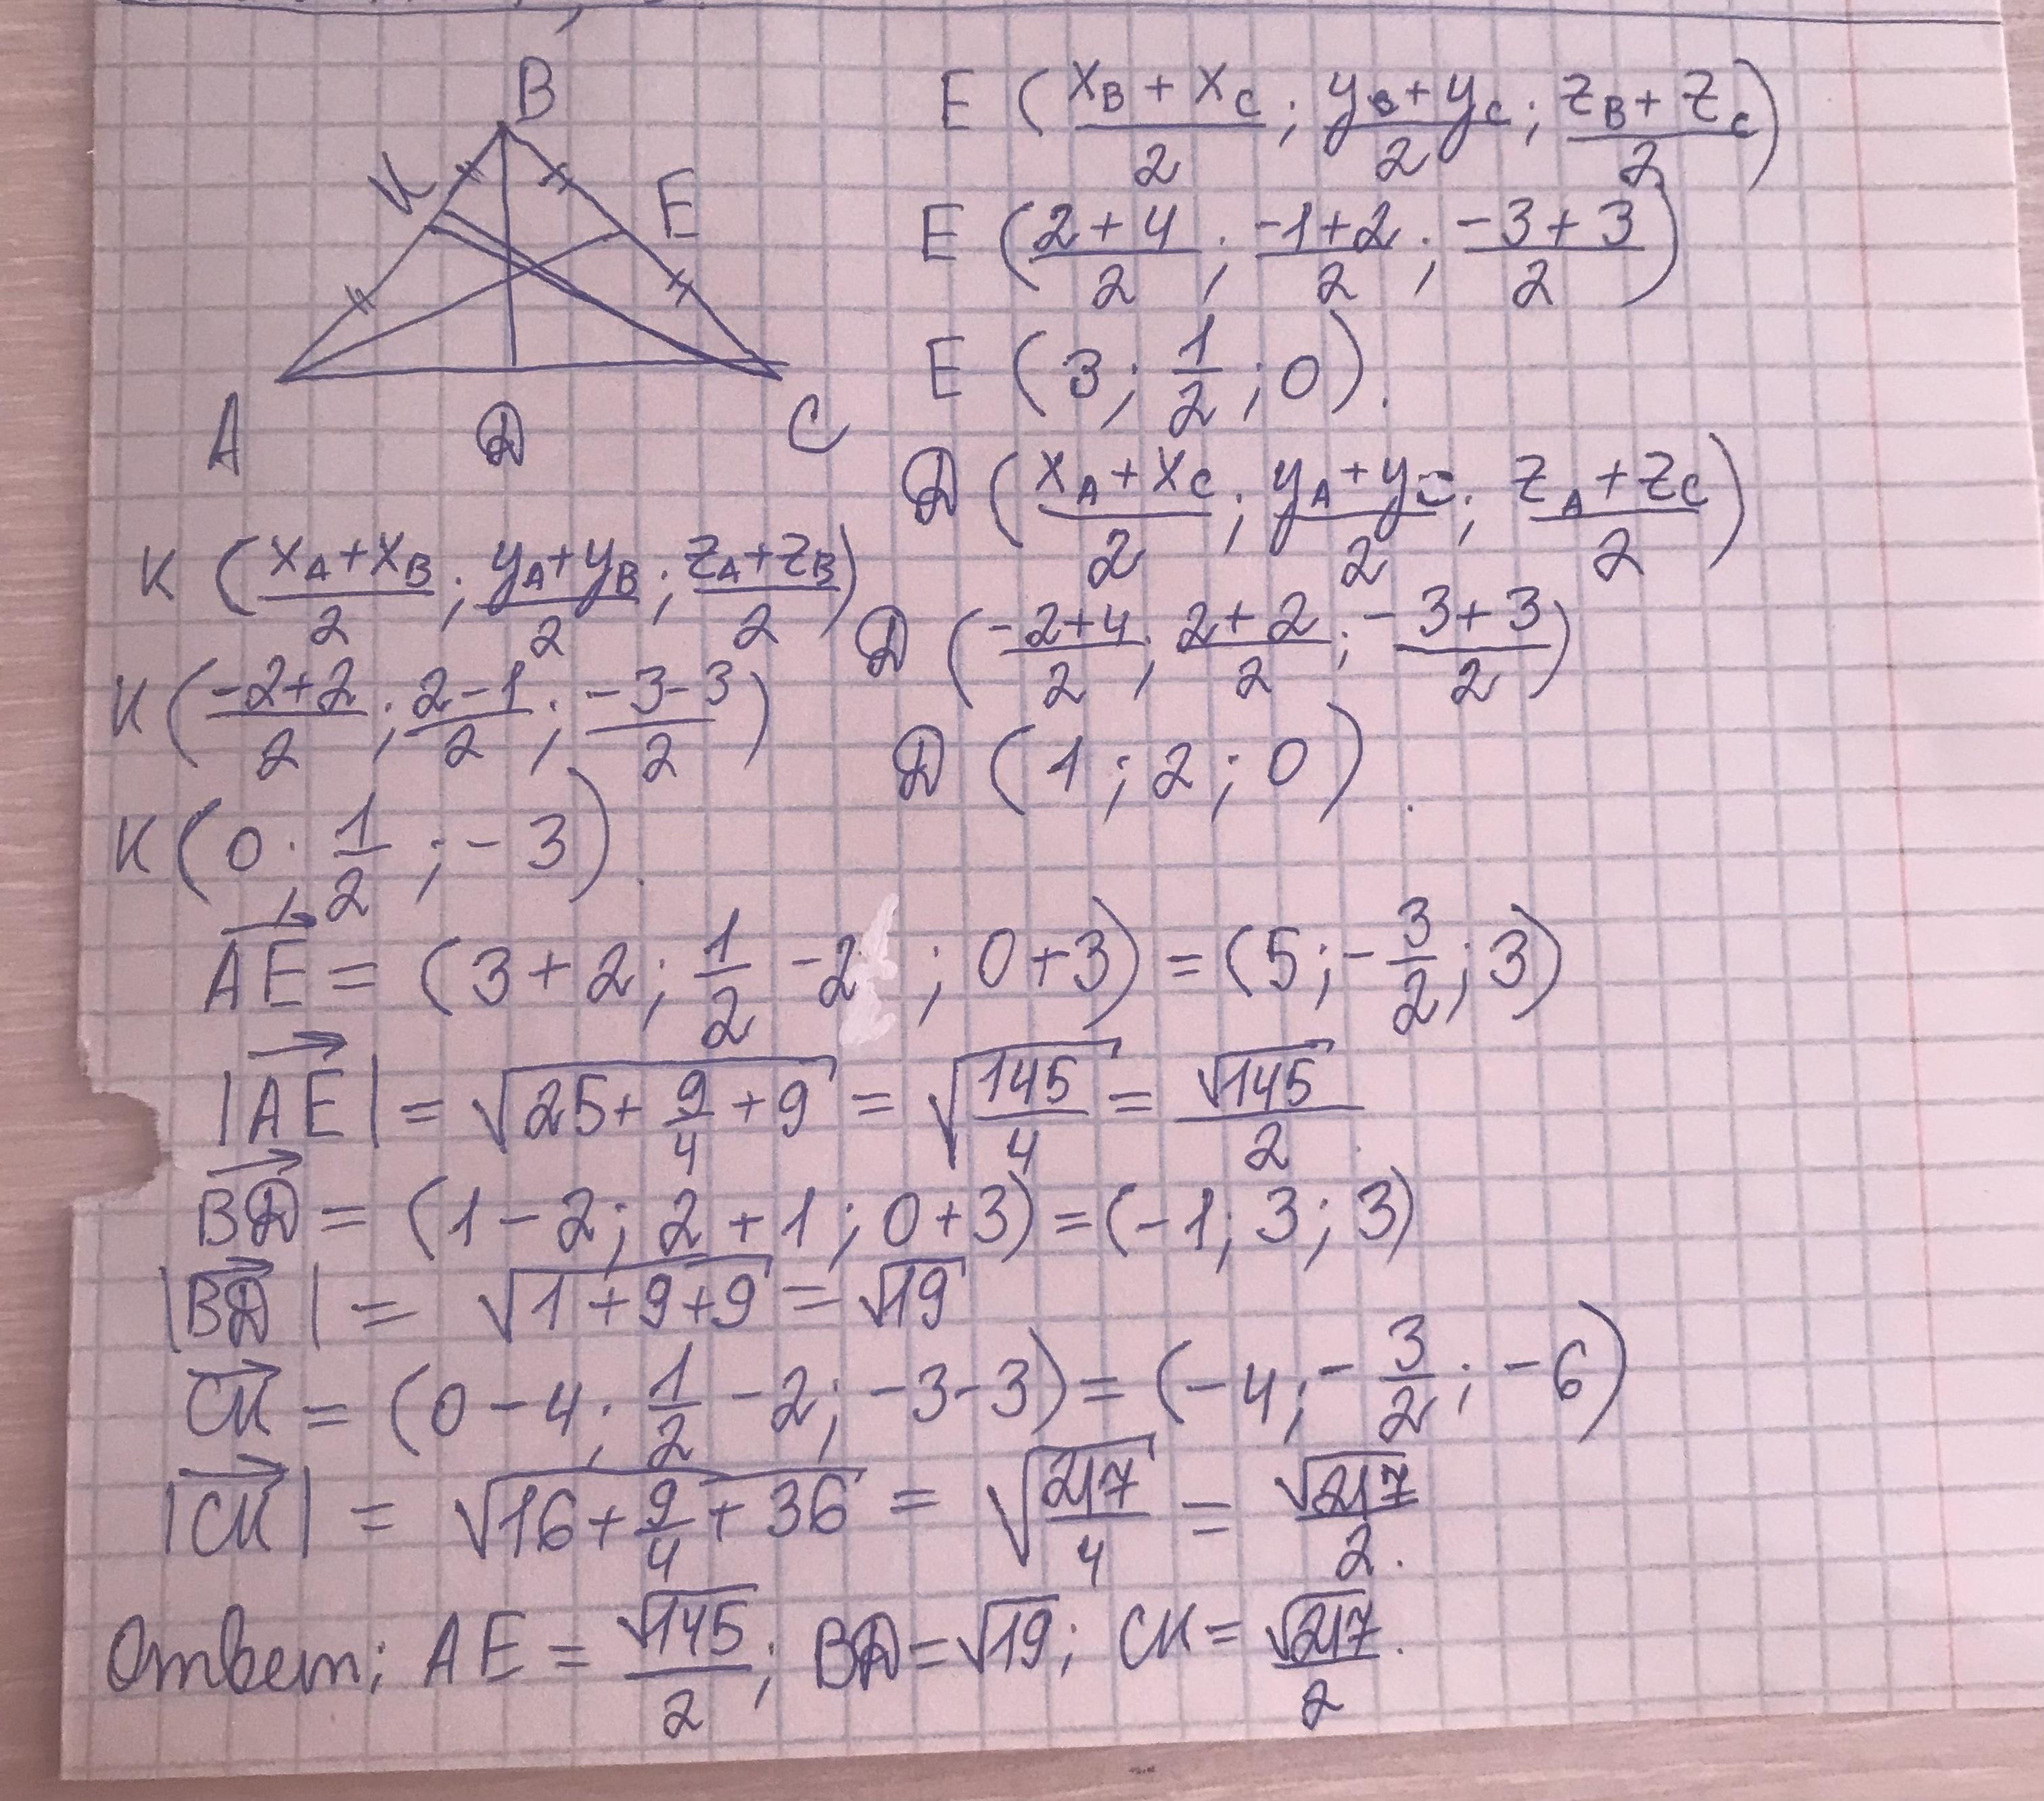 B
K
E
A
D
C
E (x_B + x_C / 2 ; y_B + y_C / 2 ; z_B + z_C / 2)
E (2 + 4 / 2 ; -1 + 2 / 2 ; -3 + 3 / 2)
E (3 ; 1/2 ; 0).
D (x_A + x_C / 2 ; y_A + y_C / 2 ; z_A + z_C / 2)
D (-2 + 4 / 2 ; 2 + 2 / 2 ; -3 + 3 / 2)
D (1 ; 2 ; 0).
K (x_A + x_B / 2 ; y_A + y_B / 2 ; z_A + z_B / 2)
K (-2 + 2 / 2 ; 2 - 1 / 2 ; -3 - 3 / 2)
K (0 ; 1/2 ; -3).
AE = (3 + 2 ; 1/2 - 2 ; 0 + 3) = (5 ; -3/2 ; 3)
|AE| = √(25 + 9/4 + 9) = √(145/4) = √145/2
BD = (1 - 2 ; 2 + 1 ; 0 + 3) = (-1 ; 3 ; 3)
|BD| = √(1 + 9 + 9) = √19
CK = (0 - 4 ; 1/2 - 2 ; -3 - 3) = (-4 ; -3/2 ; -6)
|CK| = √(16 + 9/4 + 36) = √(217/4) = √217/2.
Ответ: AE = √145/2 ; BD = √19 ; CK = √217/2.